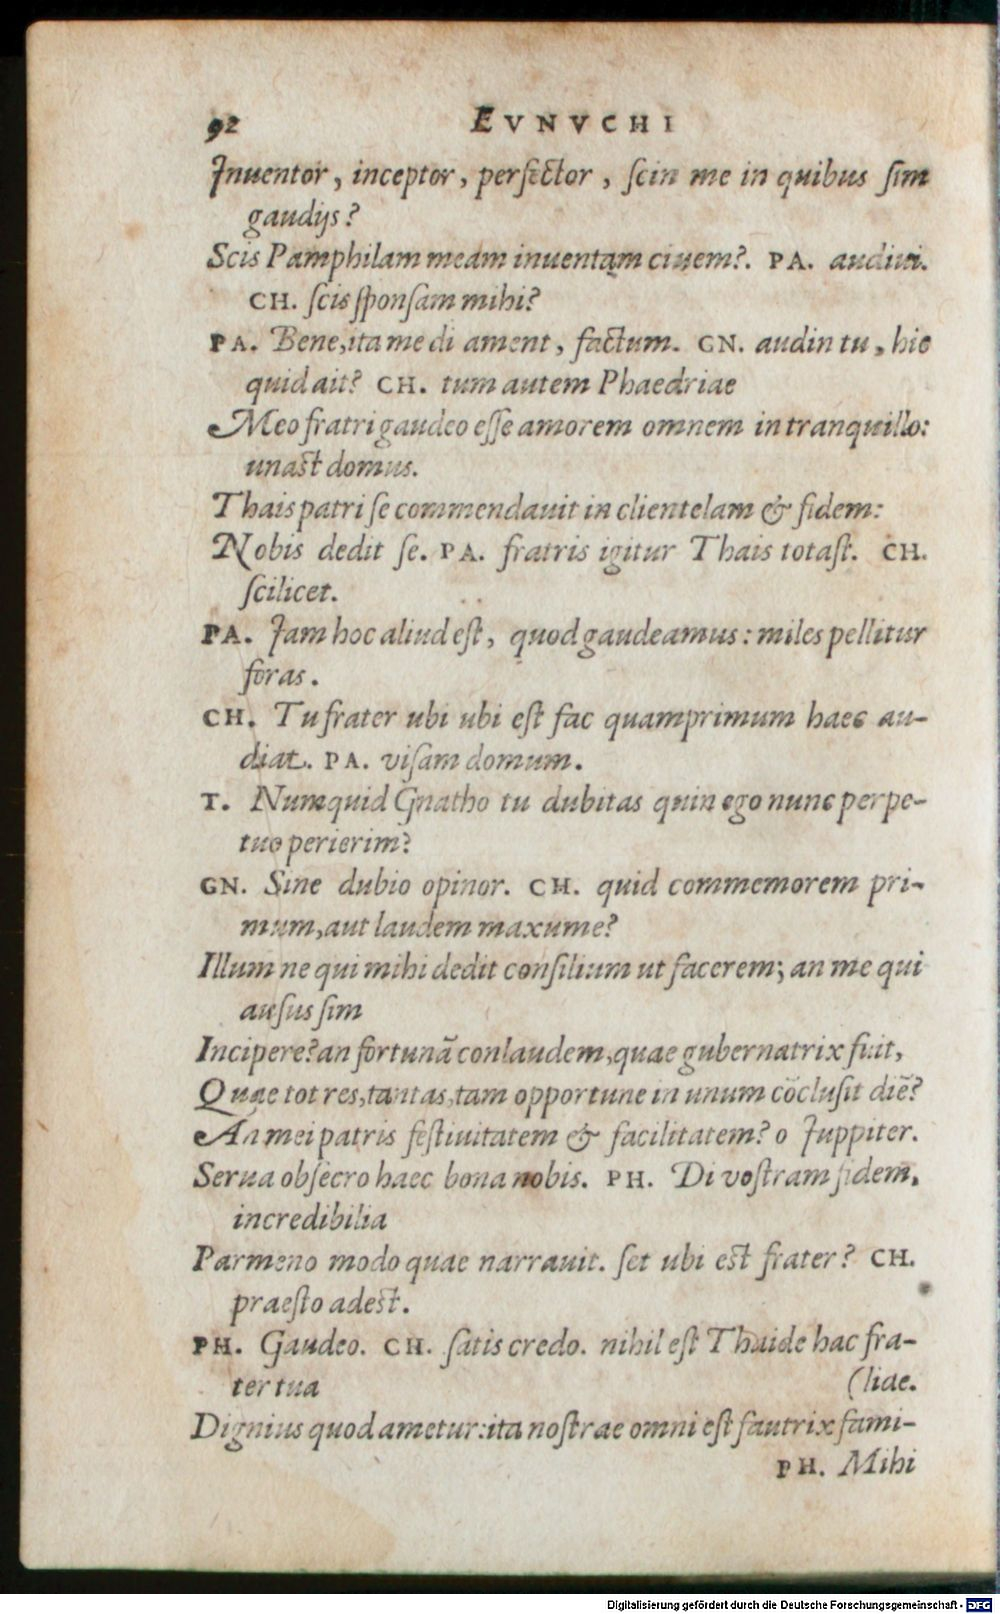 92 EVNVCHI
Inuentor, inceptor, perfector, scin me in quibus sim
gaudijs?
Scis Pamphilam meam inuentam ciuem?. PA. audiui.
CH. scis sponsam mihi?
PA. Bene, ita me di ament, factum. GN. audin tu, hic
quid ait? CH. tum autem Phaedriae
Meo fratri gaudeo esse amorem omnem in tranquillo:
unast domus.
Thais patri se commendauit in clientelam & fidem:
Nobis dedit se. PA. fratris igitur Thais totast. CH.
scilicet.
PA. Jam hoc aliud est, quod gaudeamus: miles pellitur
foras.
CH. Tu frater ubi ubi est fac quamprimum haec au-
diat. PA. visam domum.
T. Numquid Gnatho tu dubitas quin ego nunc perpe-
tuo perierim?
GN. Sine dubio opinor. CH. quid commemorem pri-
mum, aut laudem maxume?
Illumne qui mihi dedit consilium ut facerem; an me qui
ausus sim
Incipere? an fortunã conlaudem, quae gubernatrix fuit,
Quae tot res, tantas, tam opportune in unum cõclusit diẽ?
An mei patris festiuitatem & facilitatem? o Juppiter.
Serua obsecro haec bona nobis. PH. Di vostram fidem,
incredibilia
Parmeno modo quae narrauit. set ubi est frater? CH.
praesto adest.
PH. Gaudeo. CH. satis credo. nihil est Thaide hac fra-
ter tua (liae.
Dignius quod ametur: ita nostrae omni est fautrix fami-
PH. Mihi
Digitalisierung gefördert durch die Deutsche Forschungsgemeinschaft - DFG